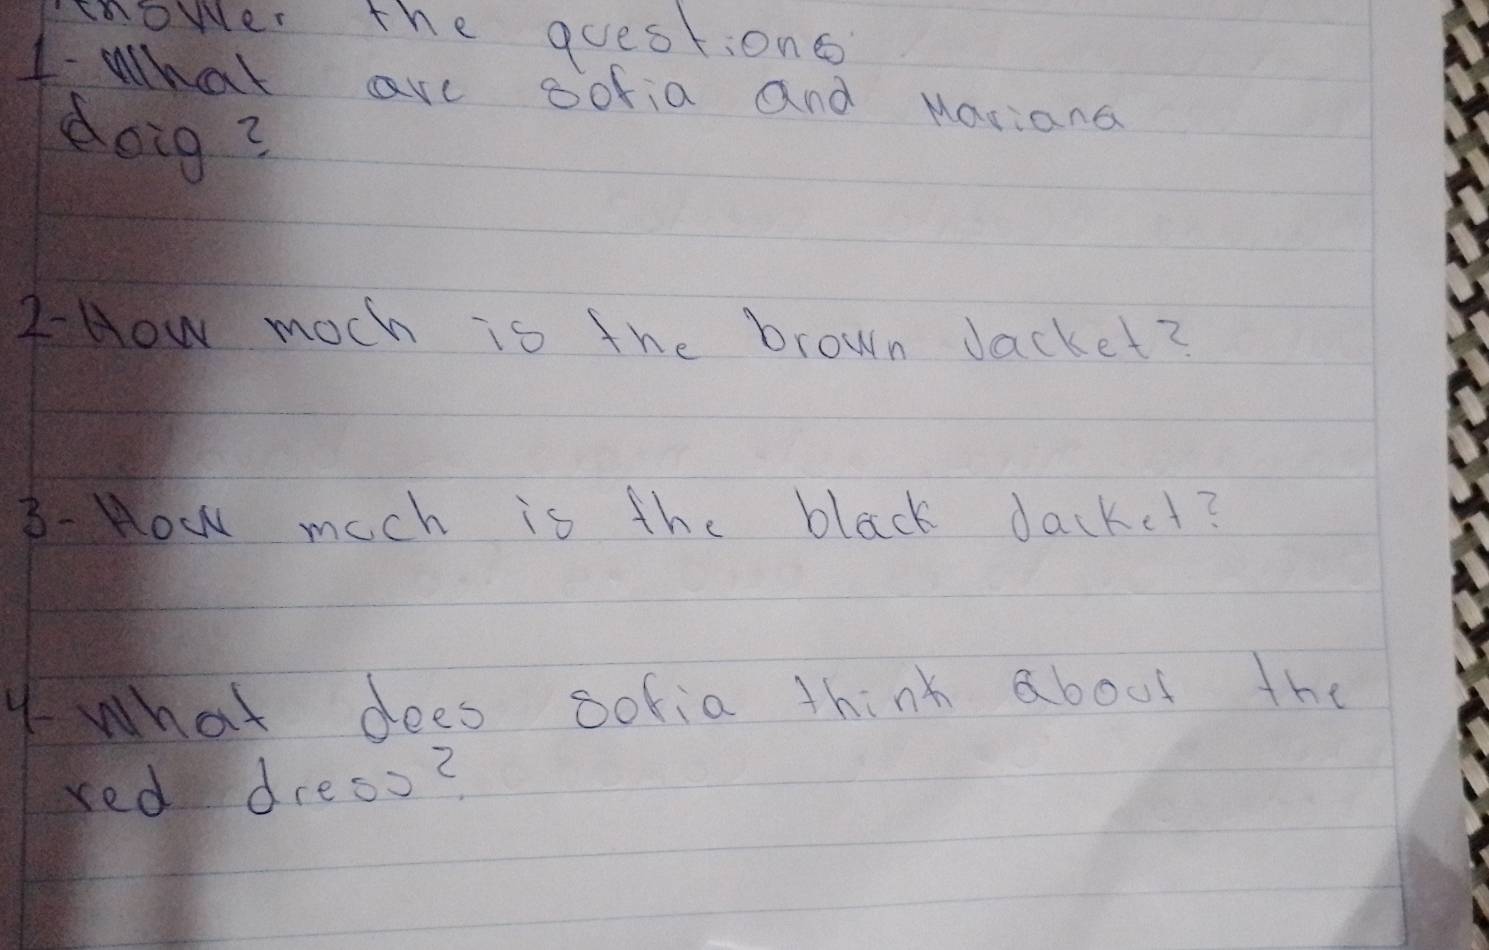 Answer the questions
1- What are sofia and Mariana
doig?
2- How moch is the brown Jacket?
3- How much is the black Jacket?
4- What does sofia think about the
red dress?